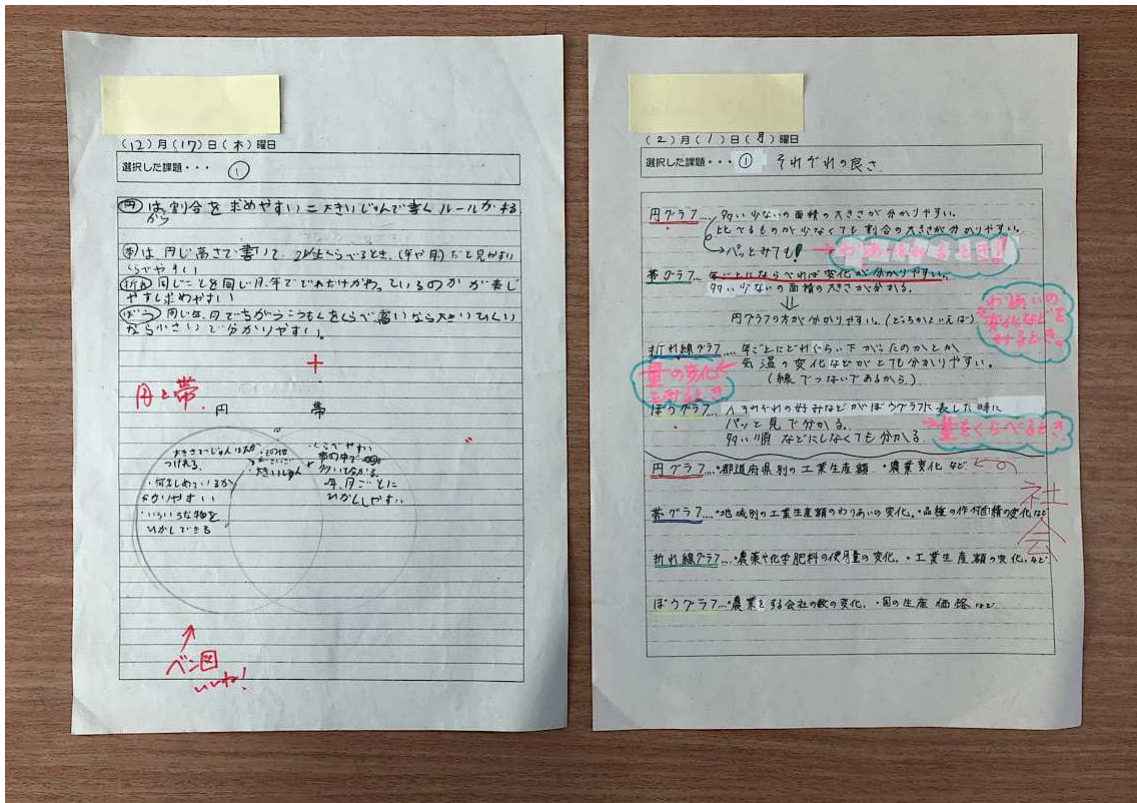 (12)月(17)日(木)曜日
選択した課題・・・ ①
円 は、割合を求めやすい=大きいじゅんで書くルールがある
から
帯は、同じ高さで書いて、2以上くらべるとき、(年や月)だと見やすい
くらべやすい
折れ 同じことを同じ月、年でどれだけかわっているのかが表し
やすし求めやすい
ぼう 同じ年、月でちがうこうもくをくらべ高いなら大きいひくい
なら小さいで分かりやすい。
+
円と帯
円 帯
大きさでじゅんばんが
つけれる。
・何をしめているか
分かりやすい
・いろいろな物を
ひかくできる
・その他
さいご
大きいじゅん
・くらべやすい
多いか分かる。
年、月ごとに
ひかくしやすい
ベン図
いいね!
(2)月(1)日(月)曜日
選択した課題・・・ ① それぞれの良さ
円グラフ… 多い少ないの面積の大きさが分かりやすい。
比べるものが少なくても割合の大きさが分かりやすい。
→パッとみても! →わりあいをみるとき!!
帯グラフ… 年ごとにならべれば変化が分かりやすい。
多い少ないの面積の大きさが分かる。
円グラフの方が分かりやすい。(どちらかといえば)
わりあいの
変化などを
みるとき。
折れ線グラフ… 年ごとにどれぐらい下がったのかとか
気温の変化などがとても分かりやすい。
(線でつないであるから)
量の変化
をみるとき
ぼうグラフ… 人それぞれの好みなどがぼうグラフに表した時に
パッと見で分かる。
多い順などにしなくても分かる。 →量をくらべるとき
円グラフ…・都道府県別の工業生産額 ・農業変化など
帯グラフ…・地域別の工業生産額のわりあいの変化。・品種の作付面積の変化など
折れ線グラフ…・農薬や化学肥料の使用量の変化、・工業生産額の変化。など
ぼうグラフ…・農業をする会社の数の変化、・国の生産価格など
社会